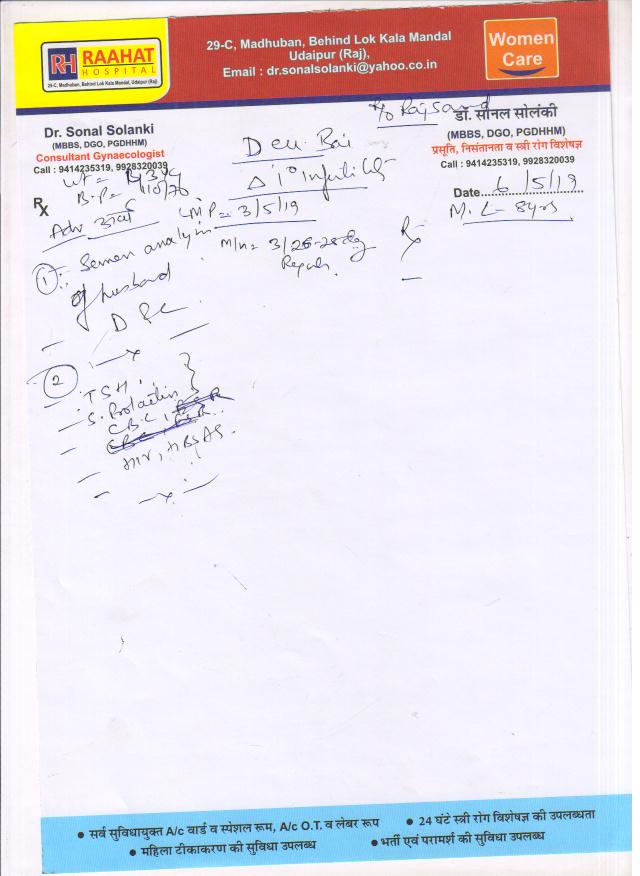 RH RAAHAT
HOSPITAL
29-C, Madhuban, Behind Lok Kala Mandal, Udaipur (Raj)
29-C, Madhuban, Behind Lok Kala Mandal
Udaipur (Raj),
Email : dr.sonalsolanki@yahoo.co.in
Women
Care
R/o Rajsamd
Dr. Sonal Solanki
(MBBS, DGO, PGDHHM)
Consultant Gynaecologist
Call : 9414235319, 9928320039
डॉ. सोनल सोलंकी
(MBBS, DGO, PGDHHM)
प्रसूति, निसंतानता व स्त्री रोग विशेषज्ञ
Call : 9414235319, 9928320039
Deu Bai
Δ 1° Infertility
Date 6/5/19
M.L- 8yrs
Wt =
B.P = 110/70
Rx
Adv
LMP = 3/5/19
M/H = 3/26-28 dy
Regular
Rx
1 Semen analysis
of husband
D &C
2
TSH,
S. Prolactin
CBC,
HIV, HBsAg.
• सर्व सुविधायुक्त A/c वार्ड व स्पेशल रूम, A/c O.T. व लेबर रूप
• 24 घंटे स्त्री रोग विशेषज्ञ की उपलब्धता
• महिला टीकाकरण की सुविधा उपलब्ध
• भर्ती एवं परामर्श की सुविधा उपलब्ध